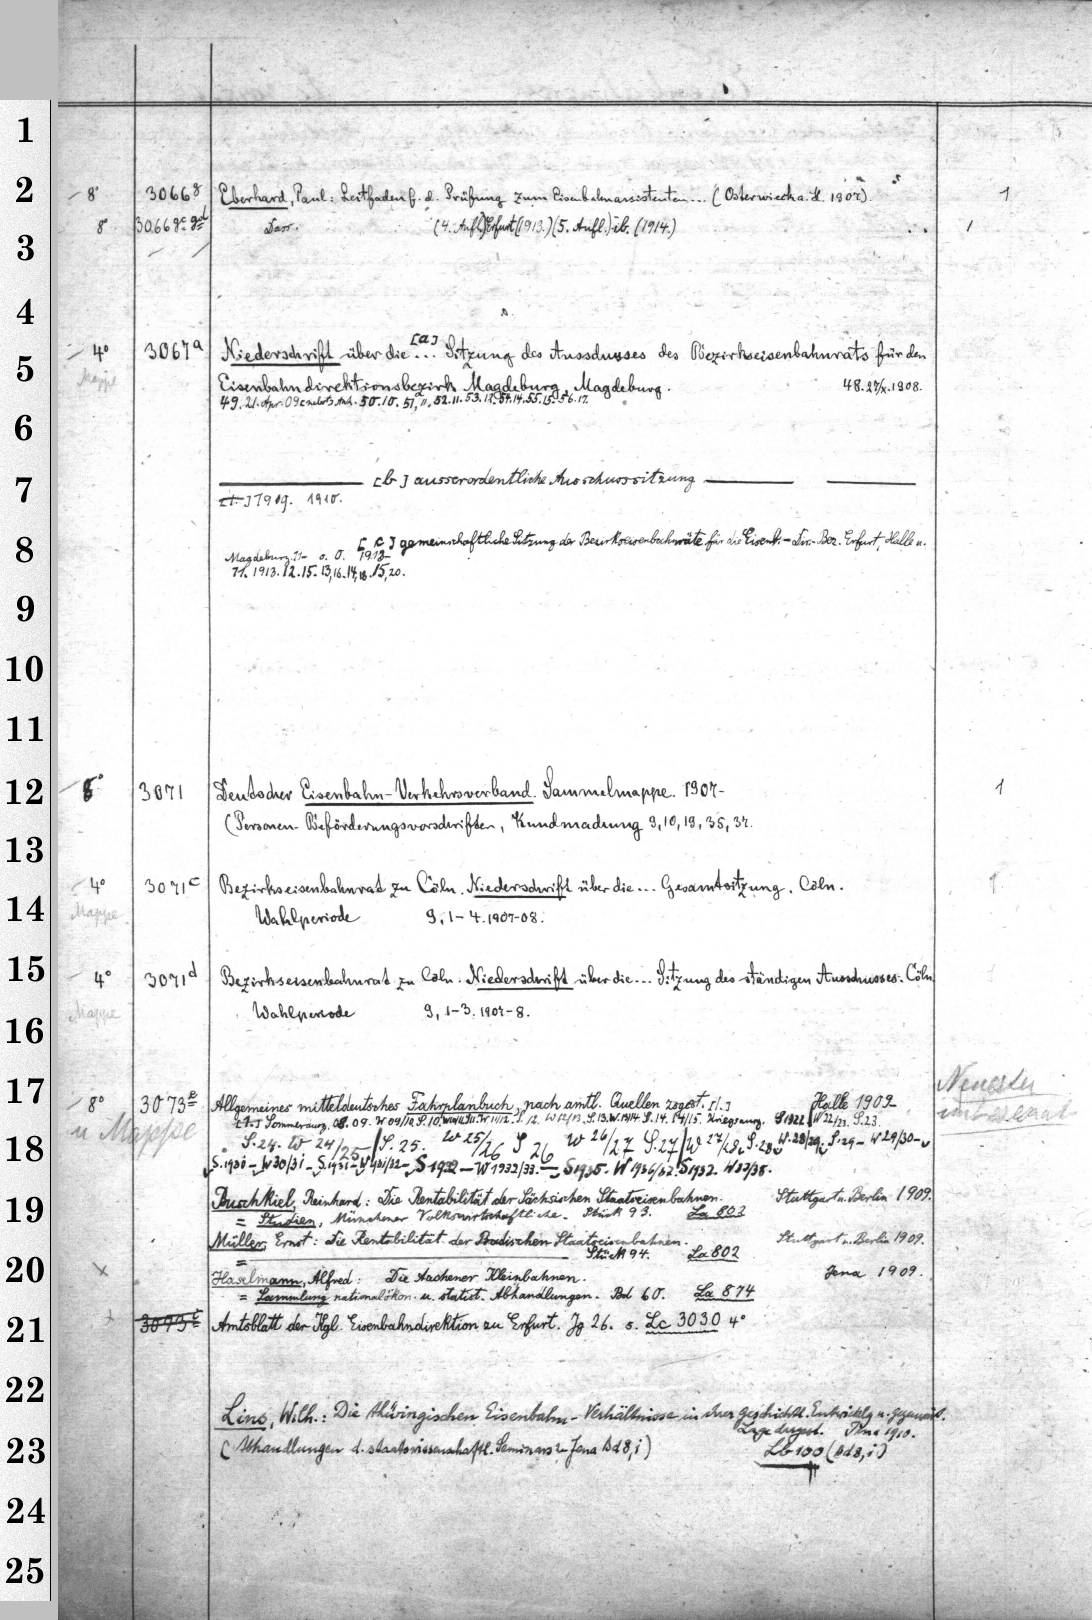 1
2
3
4
5
6
7
8
9
10
11
12
13
14
15
16
17
18
19
20
21
22
23
24
25
8° 3066g Eberhard, Paul: Leitfaden f. d. Prüfung zum Eisenbahnassistenten ... (Osterwieck a. H. 1907). 1
8° 3066 Dass. (4. Aufl.) Erfurt (1913.) (5. Aufl.) ib. (1914.) 1
4° 3067a Niederschrift über die [a] ... Sitzung des Ausschusses des Bezirkseisenbahnrats für den
Mappe Eisenbahndirektionsbezirk Magdeburg. Magdeburg. 48. 27/X. 1908.
49. 21. Apr. 09 50. 10. 51, 11. 52. 11. 53. 54. 14. 55. 15. 56. 17.
[b] ausserordentliche Ausschusssitzung
1909. 1910.
[c] gemeinschaftliche Sitzung der Bezirkseisenbahnräte für die Eisenb.-Dir.-Bez. Erfurt, Halle u.
Magdeburg. 11- o. O. 1913-
11. 1913. 12. 15. 13, 16. 14, 18. 15, 20.
8° 3071 Deutscher Eisenbahn-Verkehrsverband. Sammelmappe. 1907- 1
(Personen- Beförderungsvorschriften, Kundmachung 9, 10, 19, 35, 37.
4° 3071c Bezirkseisenbahnrat zu Cöln. Niederschrift über die ... Gesamtsitzung. Cöln. 1
Mappe Wahlperiode 9, 1-4. 1907-08.
4° 3071d Bezirkseisenbahnrat zu Cöln. Niederschrift über die ... Sitzung des ständigen Ausschusses. Cöln.
Mappe Wahlperiode 9, 1-3. 1907-8.
Neuestes
8° 3073e Allgemeines mitteldeutsches Fahrplanbuch, nach amtl. Quellen zsgest. [1.] Halle 1909-
u Mappe [1.] Sommerausg. 08. 09. W 09/10 S. 10. W 12/13. S. 13. W. 13/14 S. 14. 14/15. Kriegsausg. S 1922 W22/23. S. 23.
S. 24. W 24/25 S. 25. W 25/26 S 26 W 26/27 S. 27 W 27/28. S. 28 W. 28/29. S. 29- W 29/30-
S. 1930- W 30/31- S. 1931- W 1931/32- S 1932- W 1932/33. - S 1935. W 1936/37. S 1937. W 37/38.
Buschkiel, Reinhard: Die Rentabilität der Sächsischen Staatseisenbahnen. Stuttgart u. Berlin 1909.
= Studien, Münchener Volkswirtschaftliche. Stück 93. La 802
Müller, Ernst: Die Rentabilität der Badischen Staatseisenbahnen. Stuttgart u. Berlin 1909.
= Stück 94. La 802
Haselmann, Alfred: Die Aachener Kleinbahnen. Jena 1909.
= Sammlung nationalökon. u. statist. Abhandlungen. Bd 60. La 874
3073 Amtsblatt der Kgl. Eisenbahndirektion zu Erfurt. Jg 26. s. Lc 3030 4°
Lins, Wilh.: Die thüringischen Eisenbahn-Verhältnisse in ihrer geschichtl. Entwicklg u. gegenwärt.
Lage dargest. Jena 1910.
(Abhandlungen d. staatswissenschaftl. Seminars zu Jena Bd 8, i) Lb 100 (Bd 8, i)